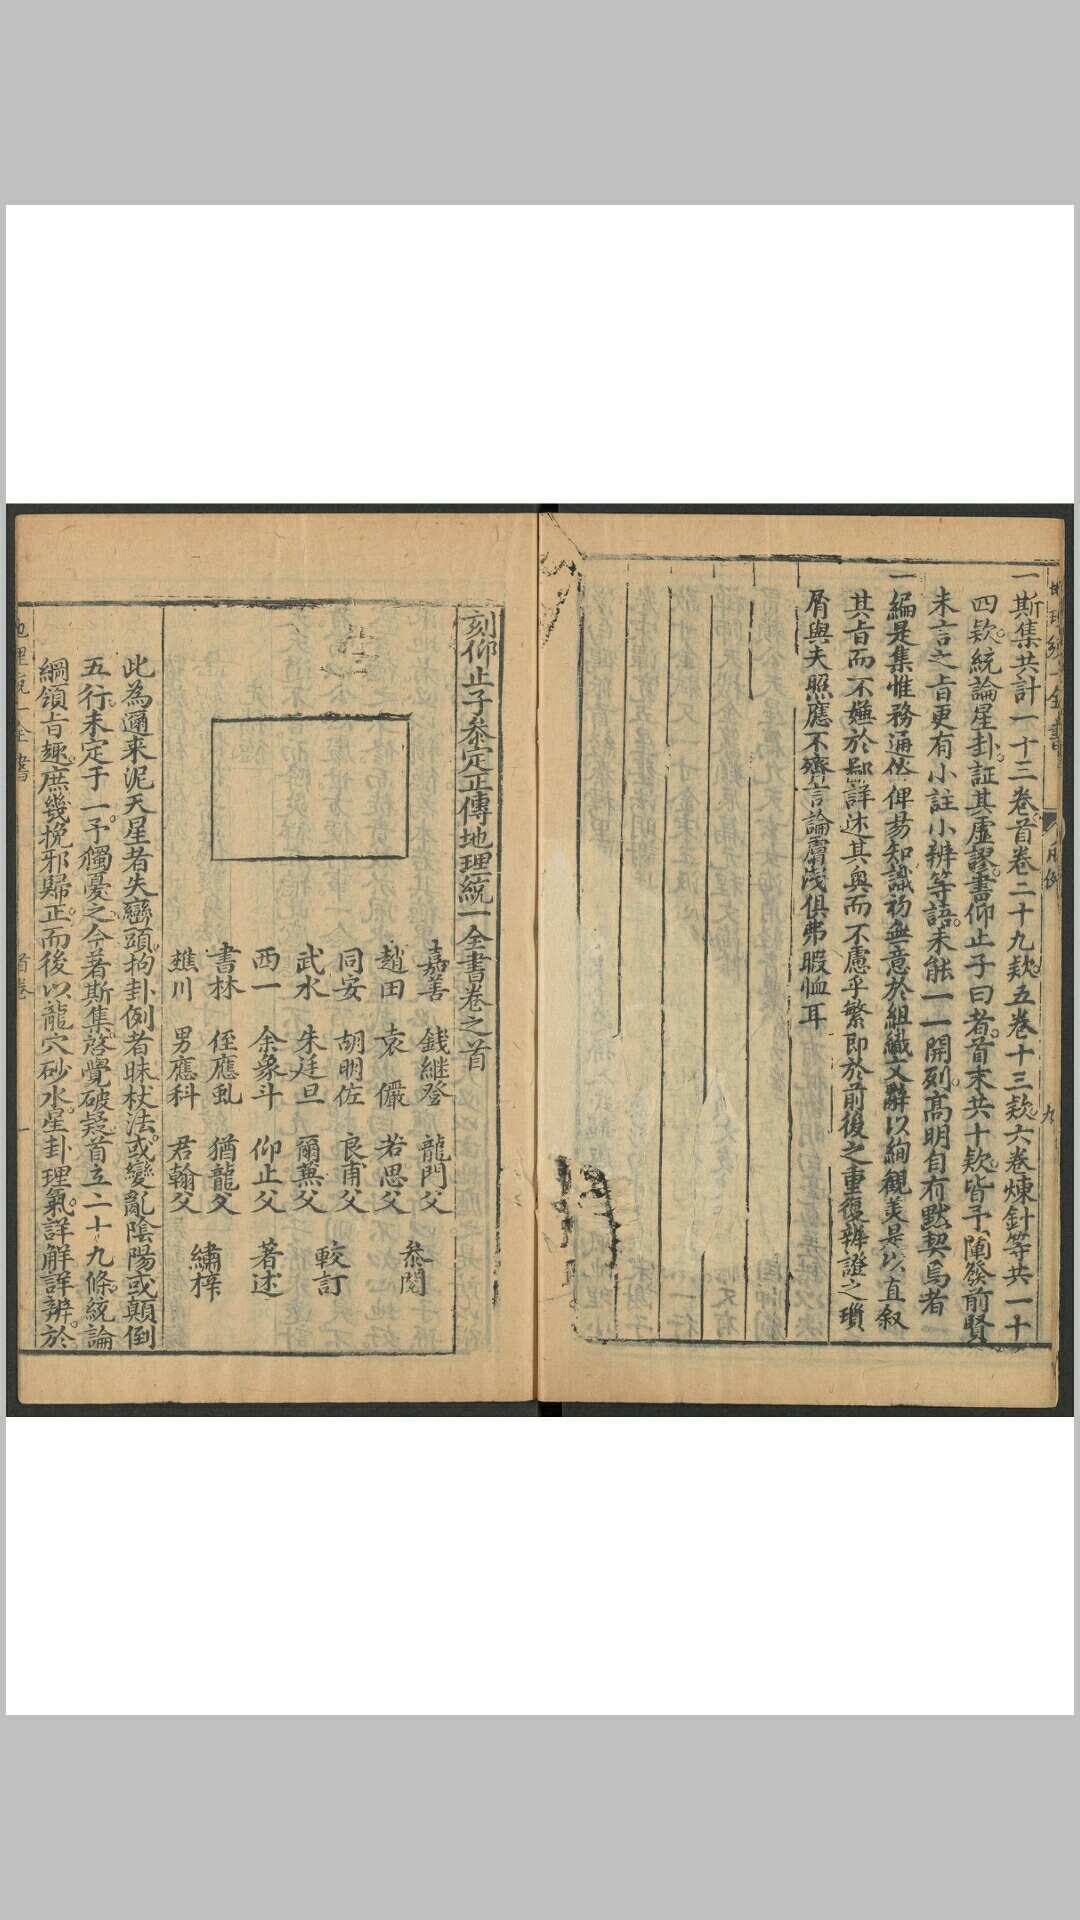 一斯集共計一十三卷首卷二十九欵五卷十三欵六卷煉針等共一十
四欵統論星卦証其虛謬書仰止子曰者首末共十欵皆予闡發前賢
未言之旨更有小註小辨等語未能一一開列高明自有默契焉者
一編是集惟務通俗俾易知識初無意於組織文辭以絢觀美是以直叙
其旨而不嫌於鄙詳述其奥而不慮乎繁即於前後之重復辨證之瑣
屑與夫照應不齊言論膚淺俱弗暇恤耳
刻仰止子叅定正傳地理統一全書卷之首
嘉善 錢繼登 龍門父
趙田 袁儼 若思父 叅閱
同安 胡明佐 良甫父
武水 朱廷旦 爾蕪父 較訂
西一 余象斗 仰止父 著述
書林 侄應虬 猶龍父
樵川 男應科 君翰父 繡梓
此為邇来泥天星者失巒頭拘卦例者昧杖法或變亂陰陽或顛倒
五行未定于一予獨憂之今著斯集啓覺破疑首立二十九條統論
綱領旨趣庶幾挽邪歸正而後以龍穴砂水星卦理氣詳解詳辨於
首卷 一